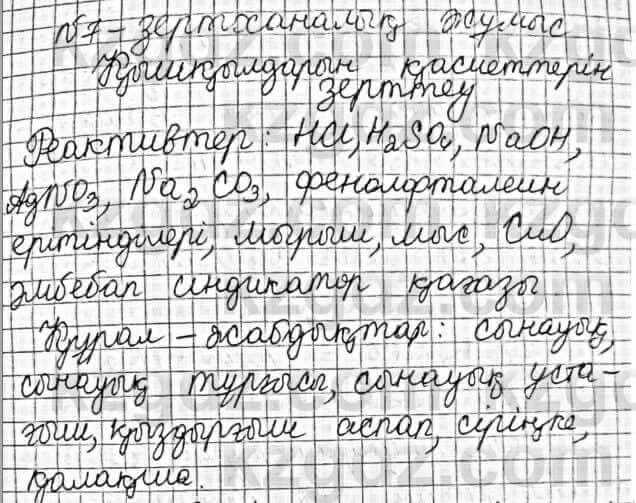 №7-зертханалық жұмыс
Қышқылдарын қасиеттерін
зерттеу
Реактивтер: HCl, H₂SO₄, NaOH,
AgNO₃, Na₂CO₃, фенолфталеин
ерітінділері, мырыш, мыс, CuO,
әмбебап индикатор қағазы
Құрал-жабдықтар: сынауық,
сынауық тұрғысы, сынауық ұста-
ғыш, қыздырғыш аспап, сіріңке,
қалақша.